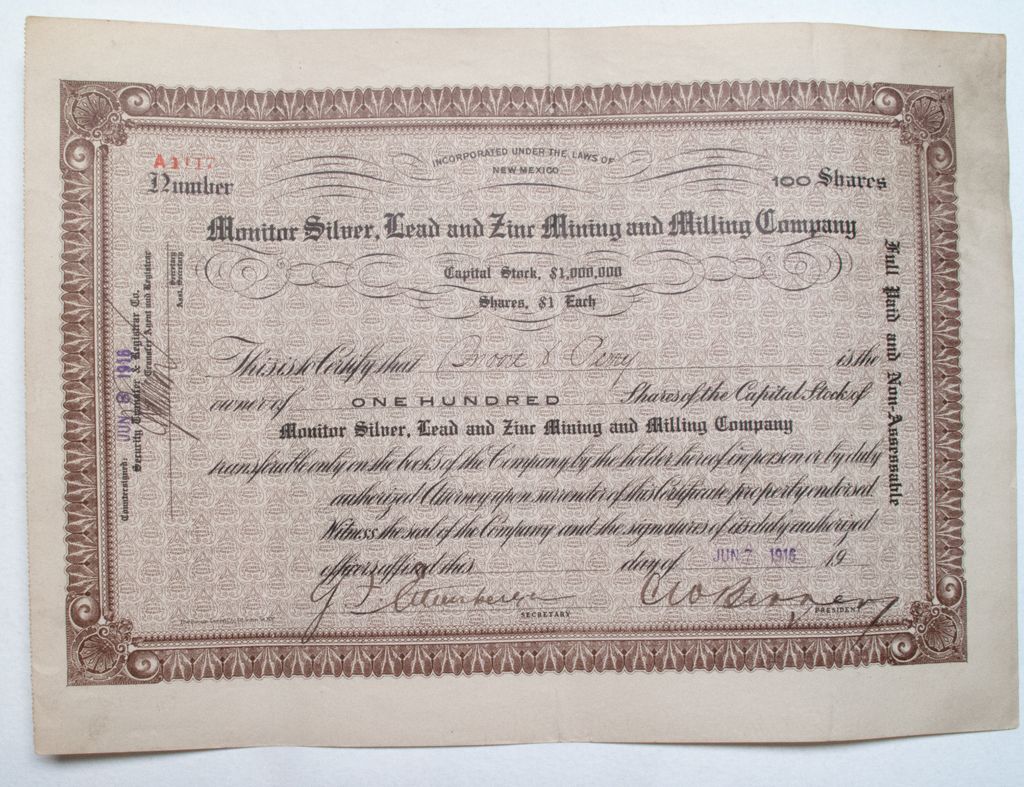 INCORPORATED UNDER THE LAWS OF
NEW MEXICO
Number
100 Shares
Monitor Silver, Lead and Zinc Mining and Milling Company
Capital Stock, $1,000,000
Shares, $1 Each
This is to Certify that is the
owner of ONE HUNDRED Shares of the Capital Stock of
Monitor Silver, Lead and Zinc Mining and Milling Company
transferable only on the books of the Company by the holder hereof in person or by duly
authorized Attorney upon surrender of this Certificate properly endorsed
Witness the seal of the Company and the signatures of its duly authorized
officers affixed this day of JUN 7 1916 19
SECRETARY
PRESIDENT
Full Paid and Non-Assessable
Countersigned: JUN 8 1916
Security Transfer & Registrar Co.
Transfer Agent and Registrar
Secretary
Asst. Secretary